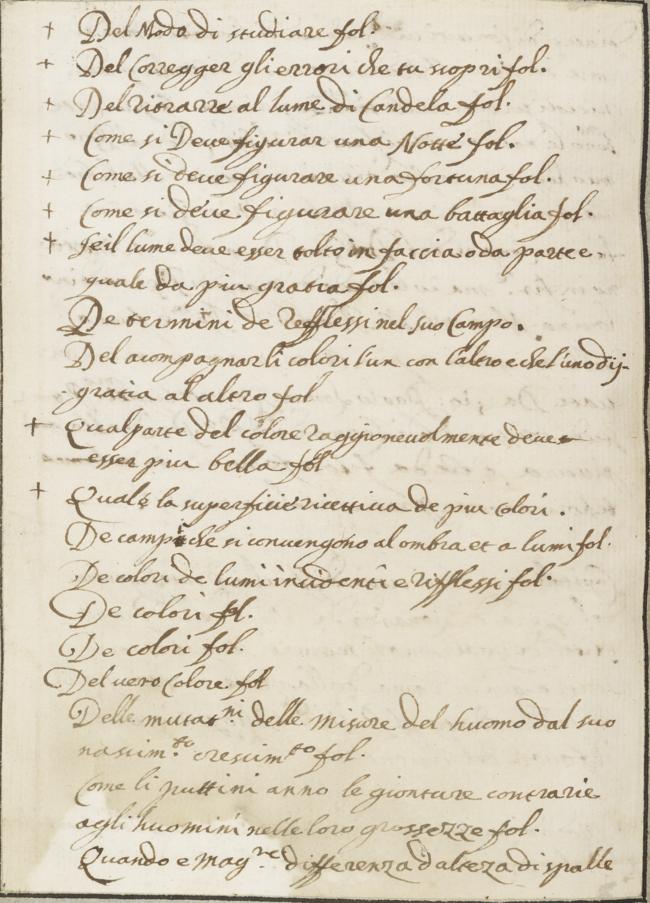 + Del Modo di studiare fol.
+ Del Corregger gli errori che tu scopri fol.
+ Del ritrarre al lume di Candela fol.
+ Come si Deve figurar una Notte fol.
+ Come si deve figurare una fortuna fol.
+ Come si deve figurare una battaglia fol.
+ Se il lume deve esser tolto in faccia o da parte e
quale da piu gratia fol.
De termini de Refflessi nel suo Campo.
Del acompagnar li colori l'un con l'altro e che l'uno dij
gratia al altro fol
+ Qual parte del colore ragionevolmente deve
esser piu bella fol
+ Qual è la superficie ricettiva de piu colori.
De campi che si convengono al ombra et a lumi fol.
De colori de lumi incidenti e rifflessi fol.
De colori fol.
De colori fol.
Del vero Colore fol
Delle mutat.ni delle misure del huomo dal suo
nascim.to crescim.to fol.
Come li puttini anno le gionture contrarie
agli huomini nelle loro grossezze fol.
Quando e mag.re differenza d'alteza di spalle